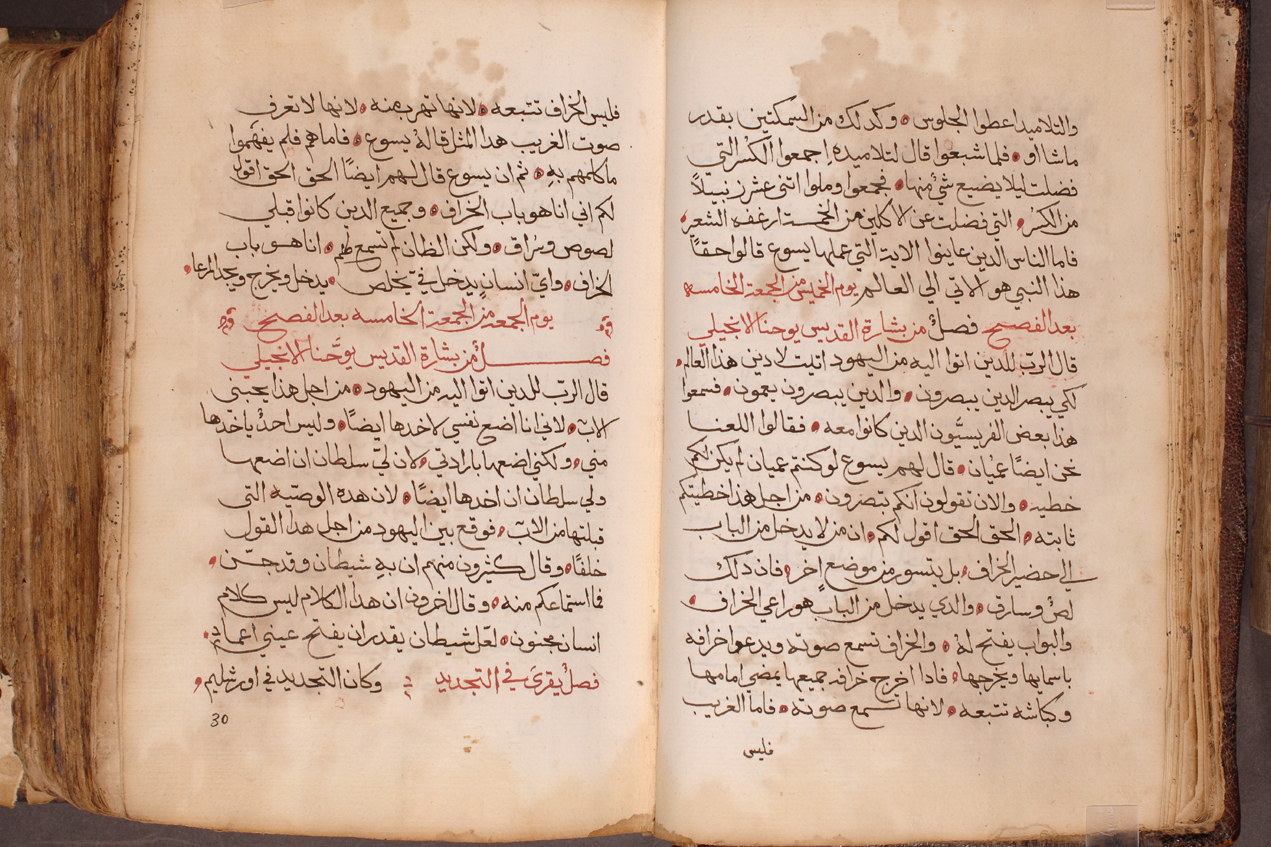 والتلاميد اعطوا الجلوس ٥ وكدلك من السمكتين بقدر
ماشااو ٥ فلما شبعوا قال لتلاميده اجمعوا الكسر التي
فضلت ليلا يضيع شي منها ٥ فجمعوا وملوا اتنى عشر زنبيلاً
من الكسر ٥ التي فضلت عن الاكلين من الخمسة ارغفه الشعير ٥
فاما الناس الدين عاينوا الاية التي عملها يسوع قالوا حقاً
هذا النبي هو الاتي الي العالم يوم الخميس من الجمعة الخامسه
بعد الفصح فصلٌ من بشارة القديس يوحنا الانجيلي
قال الربّ للدين اتوا اليه من اليهود اتيت لادين هذا العالم ٥
لكي يبصر الدين يبصرون ٥ والدين يبصرون يعمون ٥ فسمعوا
هذا بعض الفريسيّون الدين كانوا معه ٥ فقالوا اللعنا
نحن ايضاً عميان ٥ قال لهم يسوع لو كنتم عميان لم يكن لكم
خطيه ٥ والان تقولون انكم بتصرون ٥ من اجل هذا خطيتكم
ثابته ٥ الحق الحق اقول لكم ٥ ان من لا يدخل من الباب
الي حضير الخراف ٥ بل يتسور من موضع اخر ٥ فان دلك
لصٌ وسارق ٥ والدي يدخل من الباب هو راعي الخراف ٥
والبواب يفتح لهُ ٥ والخراف تسمع صوته ويدعوا خرافه
باسمايها ويخرجها ٥ فادا اخرج خرافه جميعها يمضي امامها
وكباشه تتبعه ٥ لانها تسمع صوته ٥ فاما الغريب
فليس
فليس الخراف تتبعه ٥ لانها تهرب منه ٥ لانها لا تعرف
صوت الغريب هدا المثل قالهُ يسوع ٥ فاما هم فلم يفهموا
ما كلمهم بهِ ٥ ثم ان يسوع قال لهم ايضاً الحق الحق اقول
لكم اني انا هو باب الخراف ٥ وجميع الدين كانوا قبلي
لصوص وسراق ٥ ولكن الظان لم تسمع لهم ٥ انا هو باب
الخراف ٥ واي انسانٍ يدخل في يخلص ٥ يدخل ويخرج ويجد المرعا ٥
يوم الجمعه من الجمعة الخامسه بعد الفصح
فصــــلٌ من بشارة القديس يوحنا الانجيلي
قال الربّ للدين اتوا اليه من اليهود ٥ من اجل هذا يحبني
الابّ ٥ لاني انا اضع نفسي لاخدها ايضاً ٥ وليس احدٌ ياخدها
مني ٥ ولكني اضعها بارادتي ٥ لان ليّ سلطان ان اضعها
ولي سلطان ان اخدها ايضاً ٥ لان هده الوصيه التي
قبلتها من الابّ ٥ فوقع بين اليهود من اجل هدا القول
خلفاً ٥ وقال كثيرون منهم ان به شيطان وقد جنّ ٥
فما استماعكم منه ٥ وقال اخرون ان هدا الكلام ليس كلام
انسان مجنون ٥ لعل شيطان يقدر ان يفتح عيني اعما ٥
فصلٌ يقرى في التجديد وكان التجديد في اورشليم ٥
30